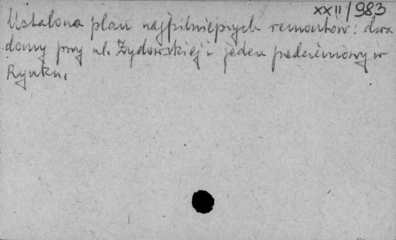 XXII/983
Ustalono plan najpilniejszych remontów: dwa
domy przy ul. Żydowskiej i jeden podziemowy w
Rynku.